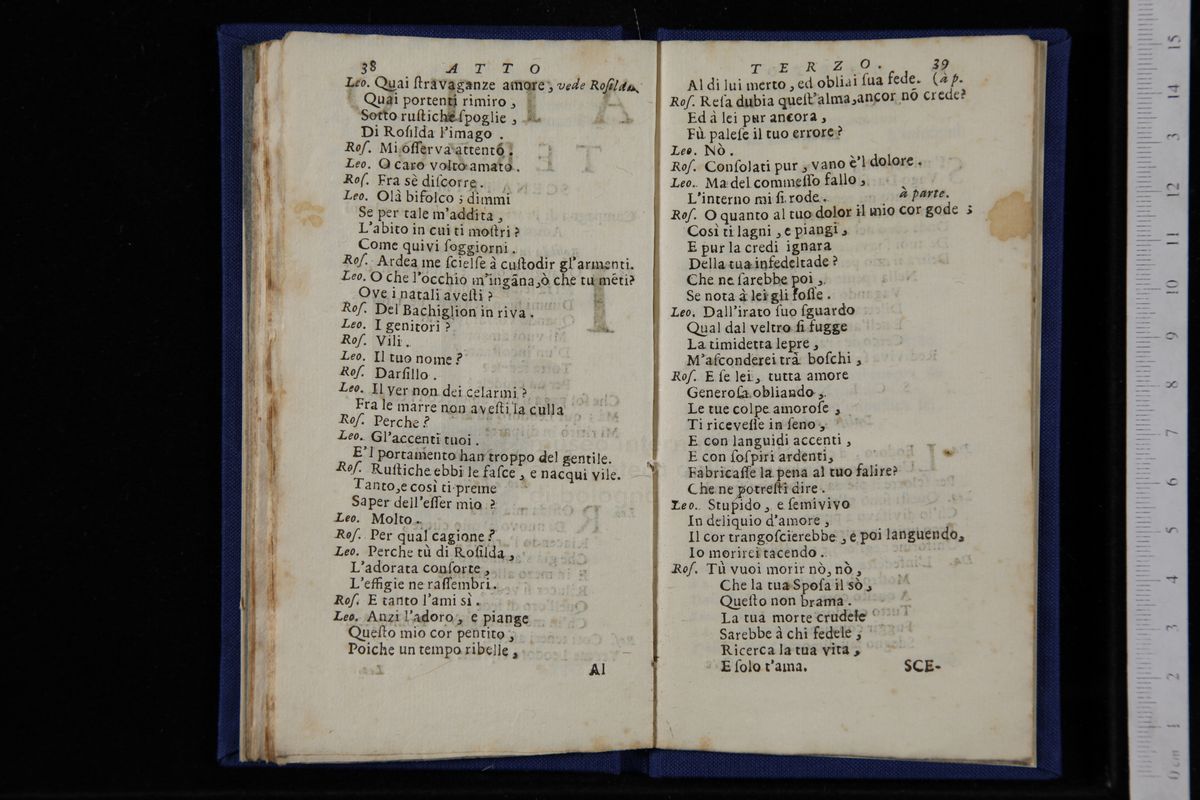 38 ATTO
Leo. Quai ſtravaganze amore, vede Roſilda.
Quai portenti rimiro,
Sotto ruſtiche ſpoglie,
Di Roſilda l'imago.
Roſ. Mi oſſerva attentó.
Leo. O caro volto amato.
Roſ. Fra sè diſcorre.
Leo. Olà bifolco; dimmi
Se per tale m'addita,
L'abito in cui ti moſtri?
Come quivi ſoggiorni.
Roſ. Ardea me ſcielſe à cuſtodir gl'armenti.
Leo. O che l'occhio m'ingãna, ò che tu mẽti?
Ove i natali aveſti?
Roſ. Del Bachiglion in riva.
Leo. I genitori?
Roſ. Vili.
Leo. Il tuo nome?
Roſ. Darſillo.
Leo. Il ver non dei celarmi?
Fra le marre non aveſti la culla
Roſ. Perche?
Leo. Gl'accenti tuoi.
E'l portamento han troppo del gentile.
Roſ. Ruſtiche ebbi le faſce, e nacqui vile.
Tanto, e così ti preme
Saper dell'eſſer mio?
Leo. Molto.
Roſ. Per qual cagione?
Leo. Perche tù di Roſilda,
L'adorata conſorte,
L'effigie ne raſſembri.
Roſ. E tanto l'ami sì.
Leo. Anzi l'adoro, e piange
Queſto mio cor pentito,
Poiche un tempo ribelle,
Al
TERZO. 39
Al di lui merto, ed obliai ſua fede. (à p.
Roſ. Reſa dubia queſt'alma, ancor nõ crede?
Ed à lei pur ancora,
Fù paleſe il tuo errore?
Leo. Nò.
Roſ. Conſolati pur, vano è'l dolore.
Leo. Ma del commeſſo fallo,
L'interno mi ſi rode. à parte.
Roſ. O quanto al tuo dolor il mio cor gode;
Così ti lagni, e piangi,
E pur la credi ignara
Della tua infedeltade?
Che ne ſarebbe poi,
Se nota à lei gli foſſe.
Leo. Dall'irato ſuo ſguardo
Qual dal veltro ſi fugge
La timidetta lepre,
M'aſconderei trà boſchi,
Roſ. E ſe lei, tutta amore
Generoſa obliando,
Le tue colpe amoroſe,
Ti riceveſſe in ſeno,
E con languidi accenti,
E con ſoſpiri ardenti,
Fabricaſſe la pena al tuo falire?
Che ne potreſti dire.
Leo. Stupido, e ſemivivo
In deliquio d'amore,
Il cor trangoſcierebbe, e poi languendo,
Io morirei tacendo.
Roſ. Tù vuoi morir nò, nò,
Che la tua Spoſa il sò,
Queſto non brama.
La tua morte crudele
Sarebbe à chi fedele,
Ricerca la tua vita,
E ſolo t'ama.
SCE-
15
14
13
12
11
10
9
8
7
6
5
4
3
2
1
0 cm